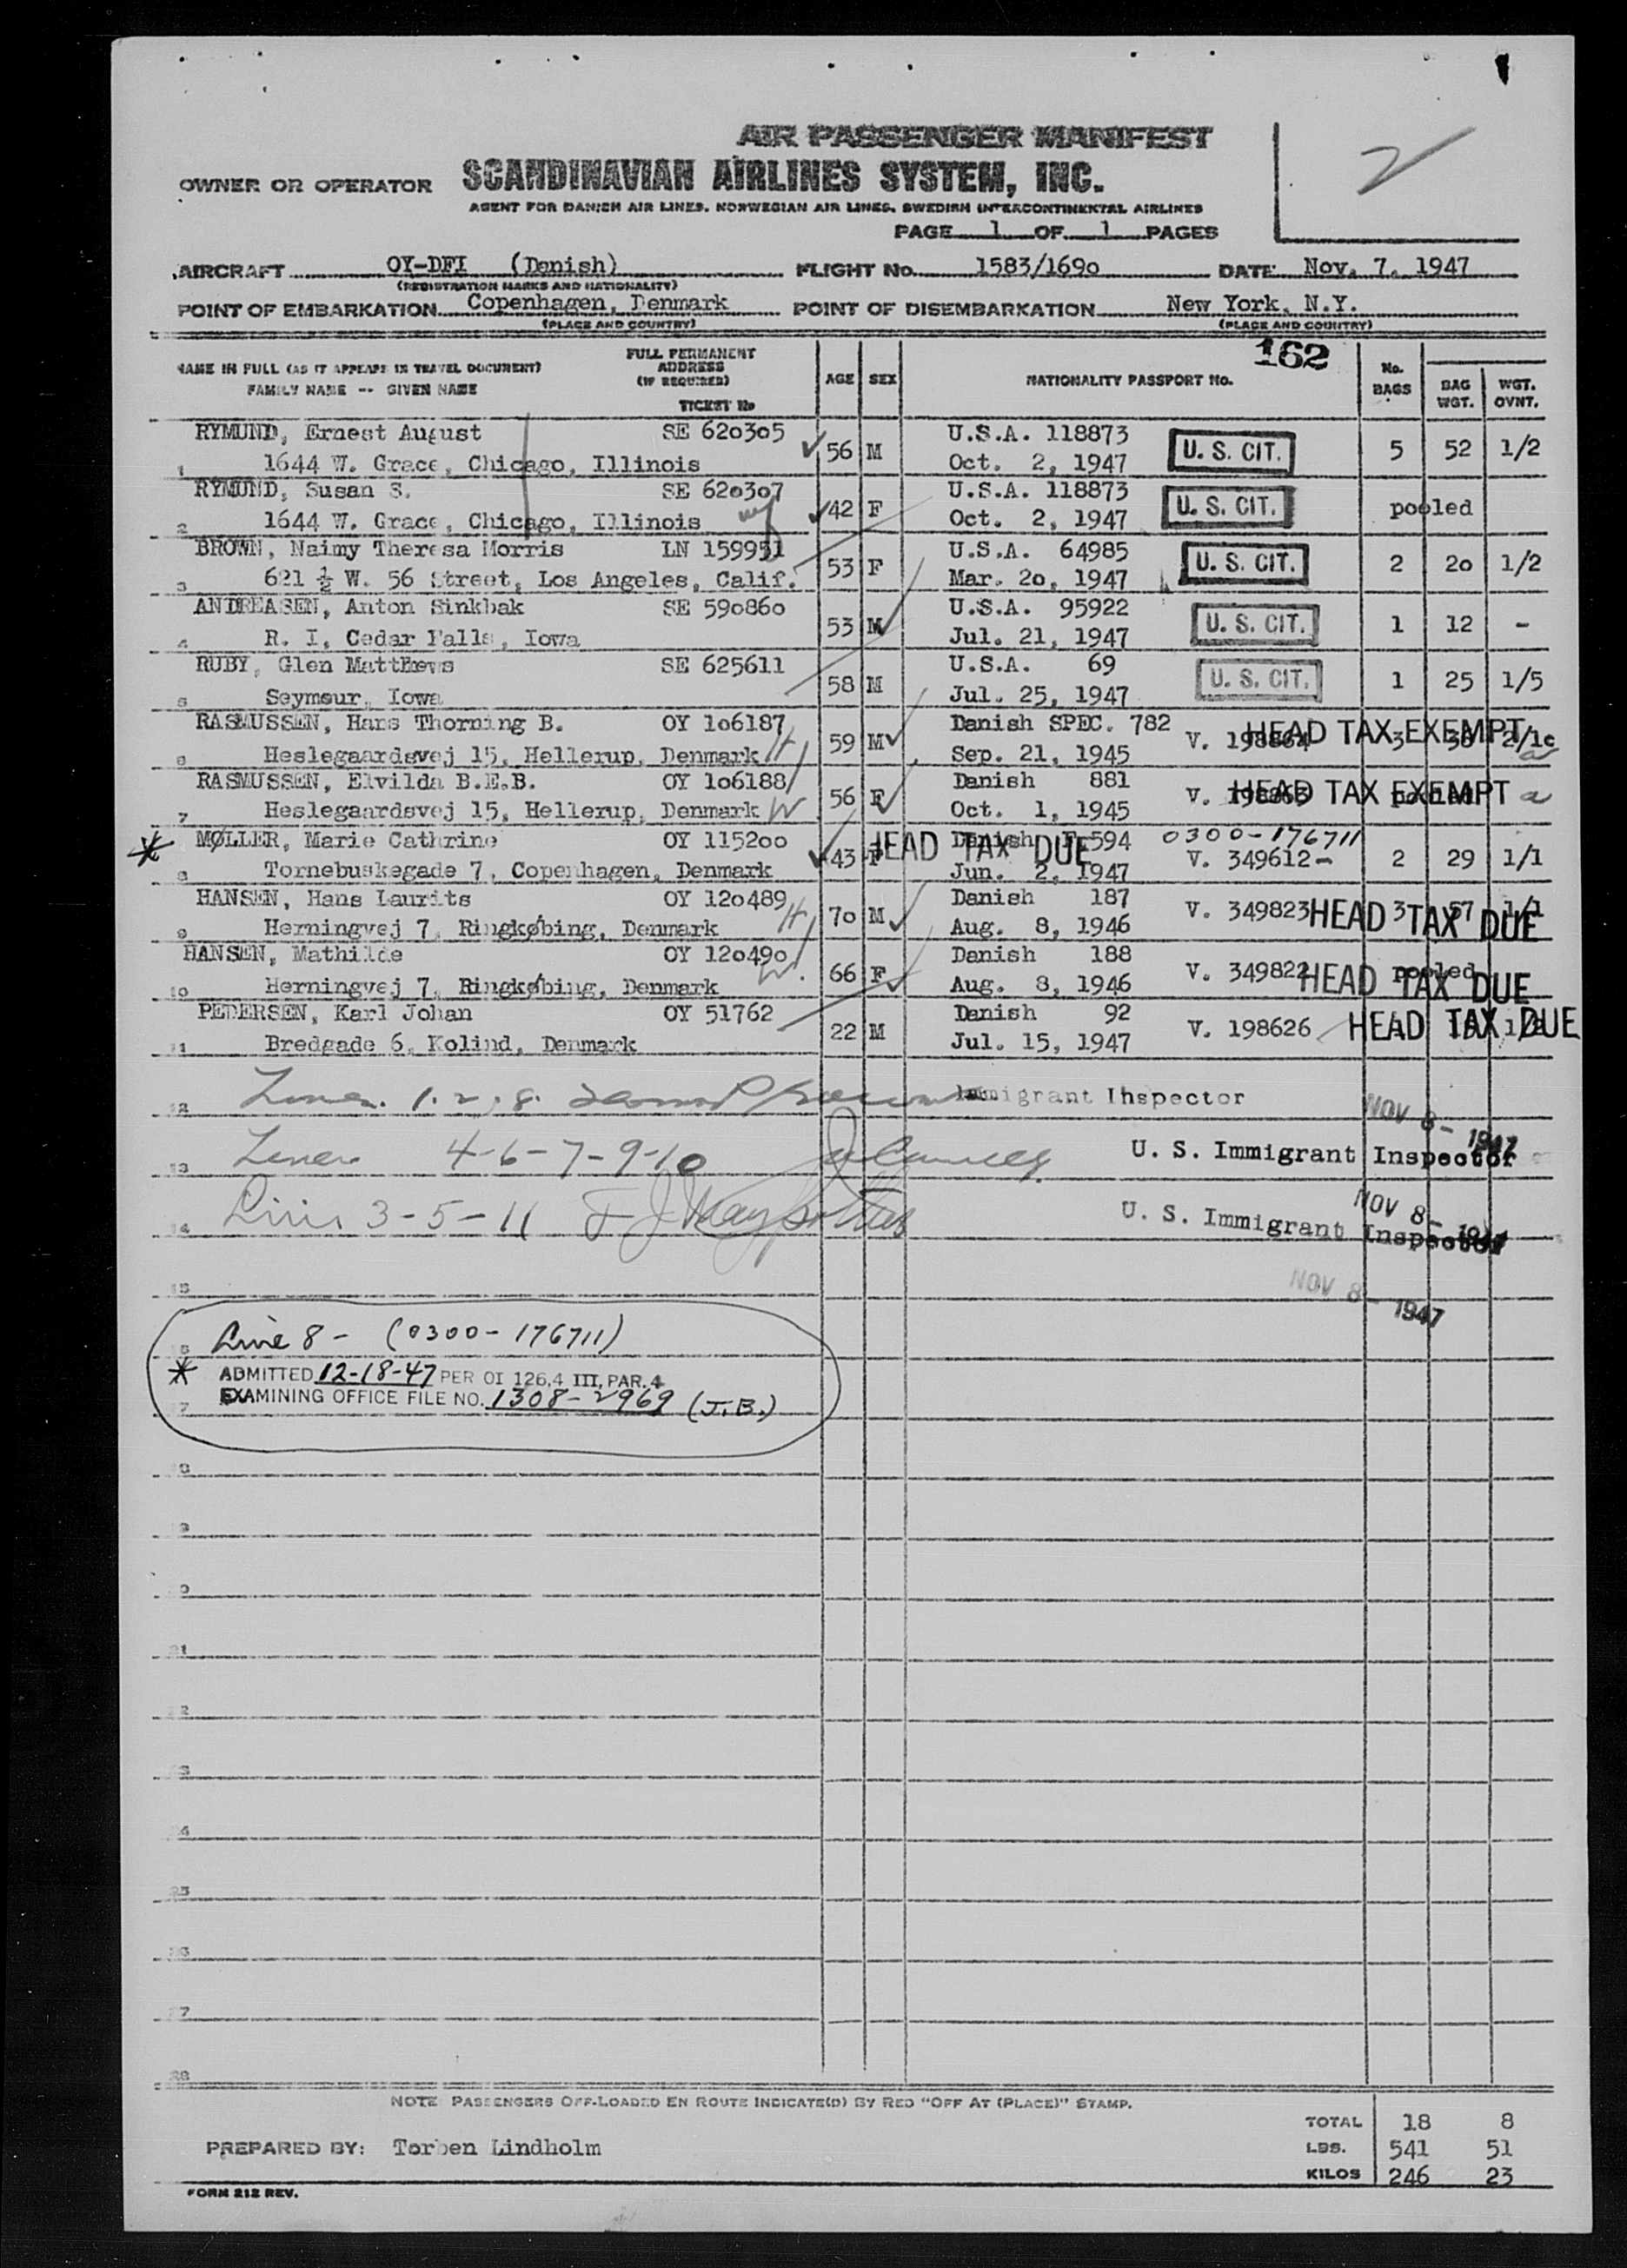 2
AIR PASSENGER MANIFEST
OWNER OR OPERATOR SCANDINAVIAN AIRLINES SYSTEM, INC.
AGENT FOR DANISH AIR LINES, NORWEGIAN AIR LINES, SWEDISH INTERCONTINENTAL AIRLINES
PAGE 1 OF 1 PAGES
AIRCRAFT OY-DFI (Danish) FLIGHT No. 1583/1690 DATE Nov. 7. 1947
(REGISTRATION MARKS AND NATIONALITY)
POINT OF EMBARKATION Copenhagen, Denmark POINT OF DISEMBARKATION New York, N.Y.
(PLACE AND COUNTRY) (PLACE AND COUNTRY)
162
NAME IN FULL (AS IT APPEARS IN TRAVEL DOCUMENT) FULL PERMANENT ADDRESS (IF REQUIRED) AGE SEX NATIONALITY PASSPORT No. No. BAGS BAG WGT. WGT. OVNT.
FAMILY NAME -- GIVEN NAME TICKET No
RYMUND, Ernest August SE 620305 U.S.A. 118873
1 1644 W. Grace, Chicago, Illinois 56 M Oct. 2, 1947 U. S. CIT. 5 52 1/2
RYMUND, Susan S. SE 620307 U.S.A. 118873
2 1644 W. Grace, Chicago, Illinois 42 F Oct. 2, 1947 U. S. CIT. pooled
BROWN, Naimy Theresa Morris LN 159951 U.S.A. 64985
3 621 ½ W. 56 Street, Los Angeles, Calif. 53 F Mar. 20, 1947 U. S. CIT. 2 20 1/2
ANDREASEN, Anton Sinkbak SE 590860 U.S.A. 95922
4 R. I, Cedar Falls, Iowa 53 M Jul. 21, 1947 U. S. CIT. 1 12 -
RUBY, Glen Matthews SE 625611 U.S.A. 69
5 Seymour, Iowa 58 M Jul. 25, 1947 U. S. CIT. 1 25 1/5
RASMUSSEN, Hans Thorning B. OY 106187 Danish SPEC. 782
6 Heslegaardsvej 15, Hellerup, Denmark H 59 M Sep. 21, 1945 V. HEAD TAX EXEMPT 3
RASMUSSEN, Elvilda B.E.B. OY 106188 Danish 881
7 Heslegaardsvej 15, Hellerup, Denmark W 56 F Oct. 1, 1945 V. HEAD TAX EXEMPT pooled
* MØLLER, Marie Cathrine OY 115200 Danish 594 0300-176711
8 Tornebuskegade 7, Copenhagen, Denmark 43 F HEAD TAX DUE Jun. 2, 1947 V. 349612- 2 29 1/1
HANSEN, Hans Laurits OY 120489 Danish 187
9 Herningvej 7, Ringkøbing, Denmark H 70 M Aug. 8, 1946 V. 349823 HEAD TAX DUE 3 57 1/1
HANSEN, Mathilde OY 120490 Danish 188
10 Herningvej 7, Ringkøbing, Denmark W 66 F Aug. 8, 1946 V. 349822 HEAD TAX DUE pooled
PEDERSEN, Karl Johan OY 51762 Danish 92
11 Bredgade 6, Kolind, Denmark 22 M Jul. 15, 1947 V. 198626 HEAD TAX DUE
12 Lines. 1. 2, 8. Immigrant Inspector NOV 8- 1947
13 Lines 4-6-7-9-10 U. S. Immigrant Inspector
14 Lines 3-5-11 U. S. Immigrant Inspector NOV 8- 1947
15 NOV 8- 1947
16 Line 8- (0300-176711)
* ADMITTED 12-18-47 PER OI 126.4 III, PAR. 4
17 EXAMINING OFFICE FILE NO. 1308-2969 (J.B.)
18
19
20
21
22
23
24
25
26
27
28
NOTE PASSENGERS OFF-LOADED EN ROUTE INDICATE(D) BY RED "OFF AT (PLACE)" STAMP.
TOTAL 18 8
PREPARED BY: Torben Lindholm LBS. 541 51
KILOS 246 23
FORM 212 REV.